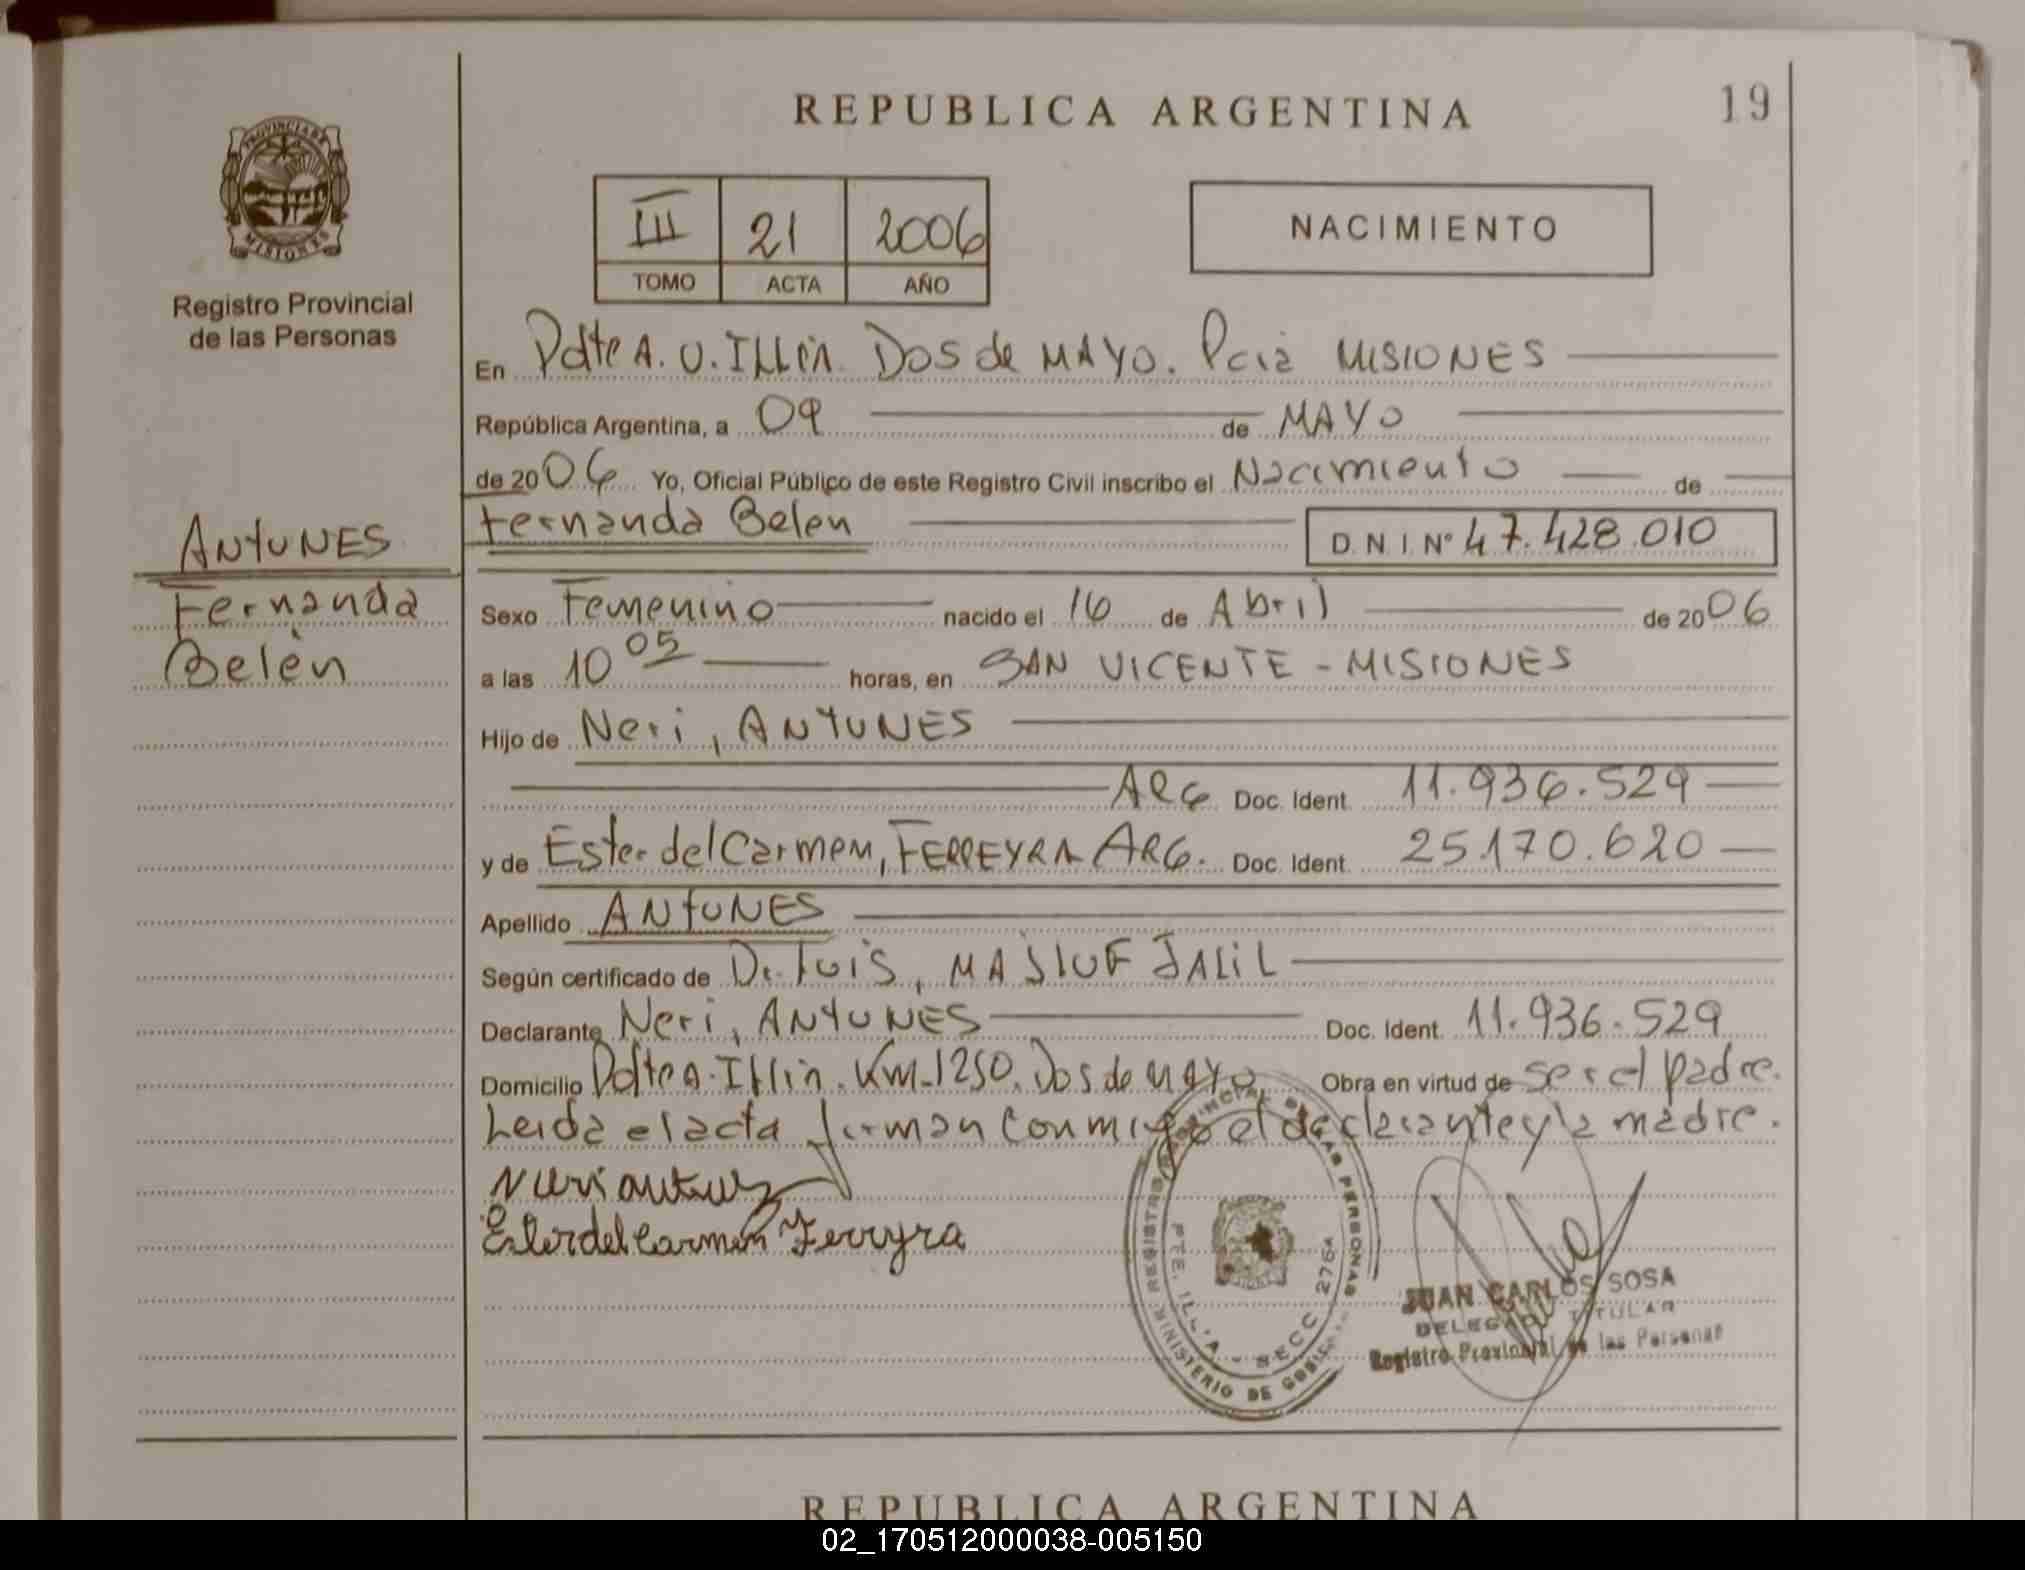 REPUBLICA ARGENTINA
19
PROVINCIA DE
MISIONES
Registro Provincial
de las Personas
III 21 2006
TOMO ACTA AÑO
NACIMIENTO
En Pdte A. U. Illia. Dos de MAYO. Pcia MISIONES
República Argentina, a 09 de MAYO
de 2006 Yo, Oficial Público de este Registro Civil inscribo el Nacimiento de
ANTUNES
Fernanda
Belén
Fernanda Belen
D.N.I. Nº 47.428.010
Sexo Femenino nacido el 16 de Abril de 2006
a las 10 05 horas, en SAN VICENTE - MISIONES
Hijo de Neri, ANTUNES
ARG Doc. Ident. 11.936.529
y de Ester del Carmen, FERREYRA ARG. Doc. Ident. 25.170.620
Apellido ANTUNES
Según certificado de Dr. Luis, MASLUF JALIL
Declarante Neri, ANTUNES Doc. Ident. 11.936.529
Domicilio Pdte A. Illia. Km. 1250. Dos de MAYO Obra en virtud de ser el padre.
Leida el acta firman conmigo el declarante y la madre.
Neri antunez
Ester del Carmen Ferreyra
REGISTRO PROVINCIAL DE LAS PERSONAS
MINISTERIO DE GOBIERNO
PTE. ILLIA - SECC 276A
JUAN CARLOS SOSA
DELEGADO TITULAR
Registro Provincial de las Personas
REPUBLICA ARGENTINA
02_170512000038-005150